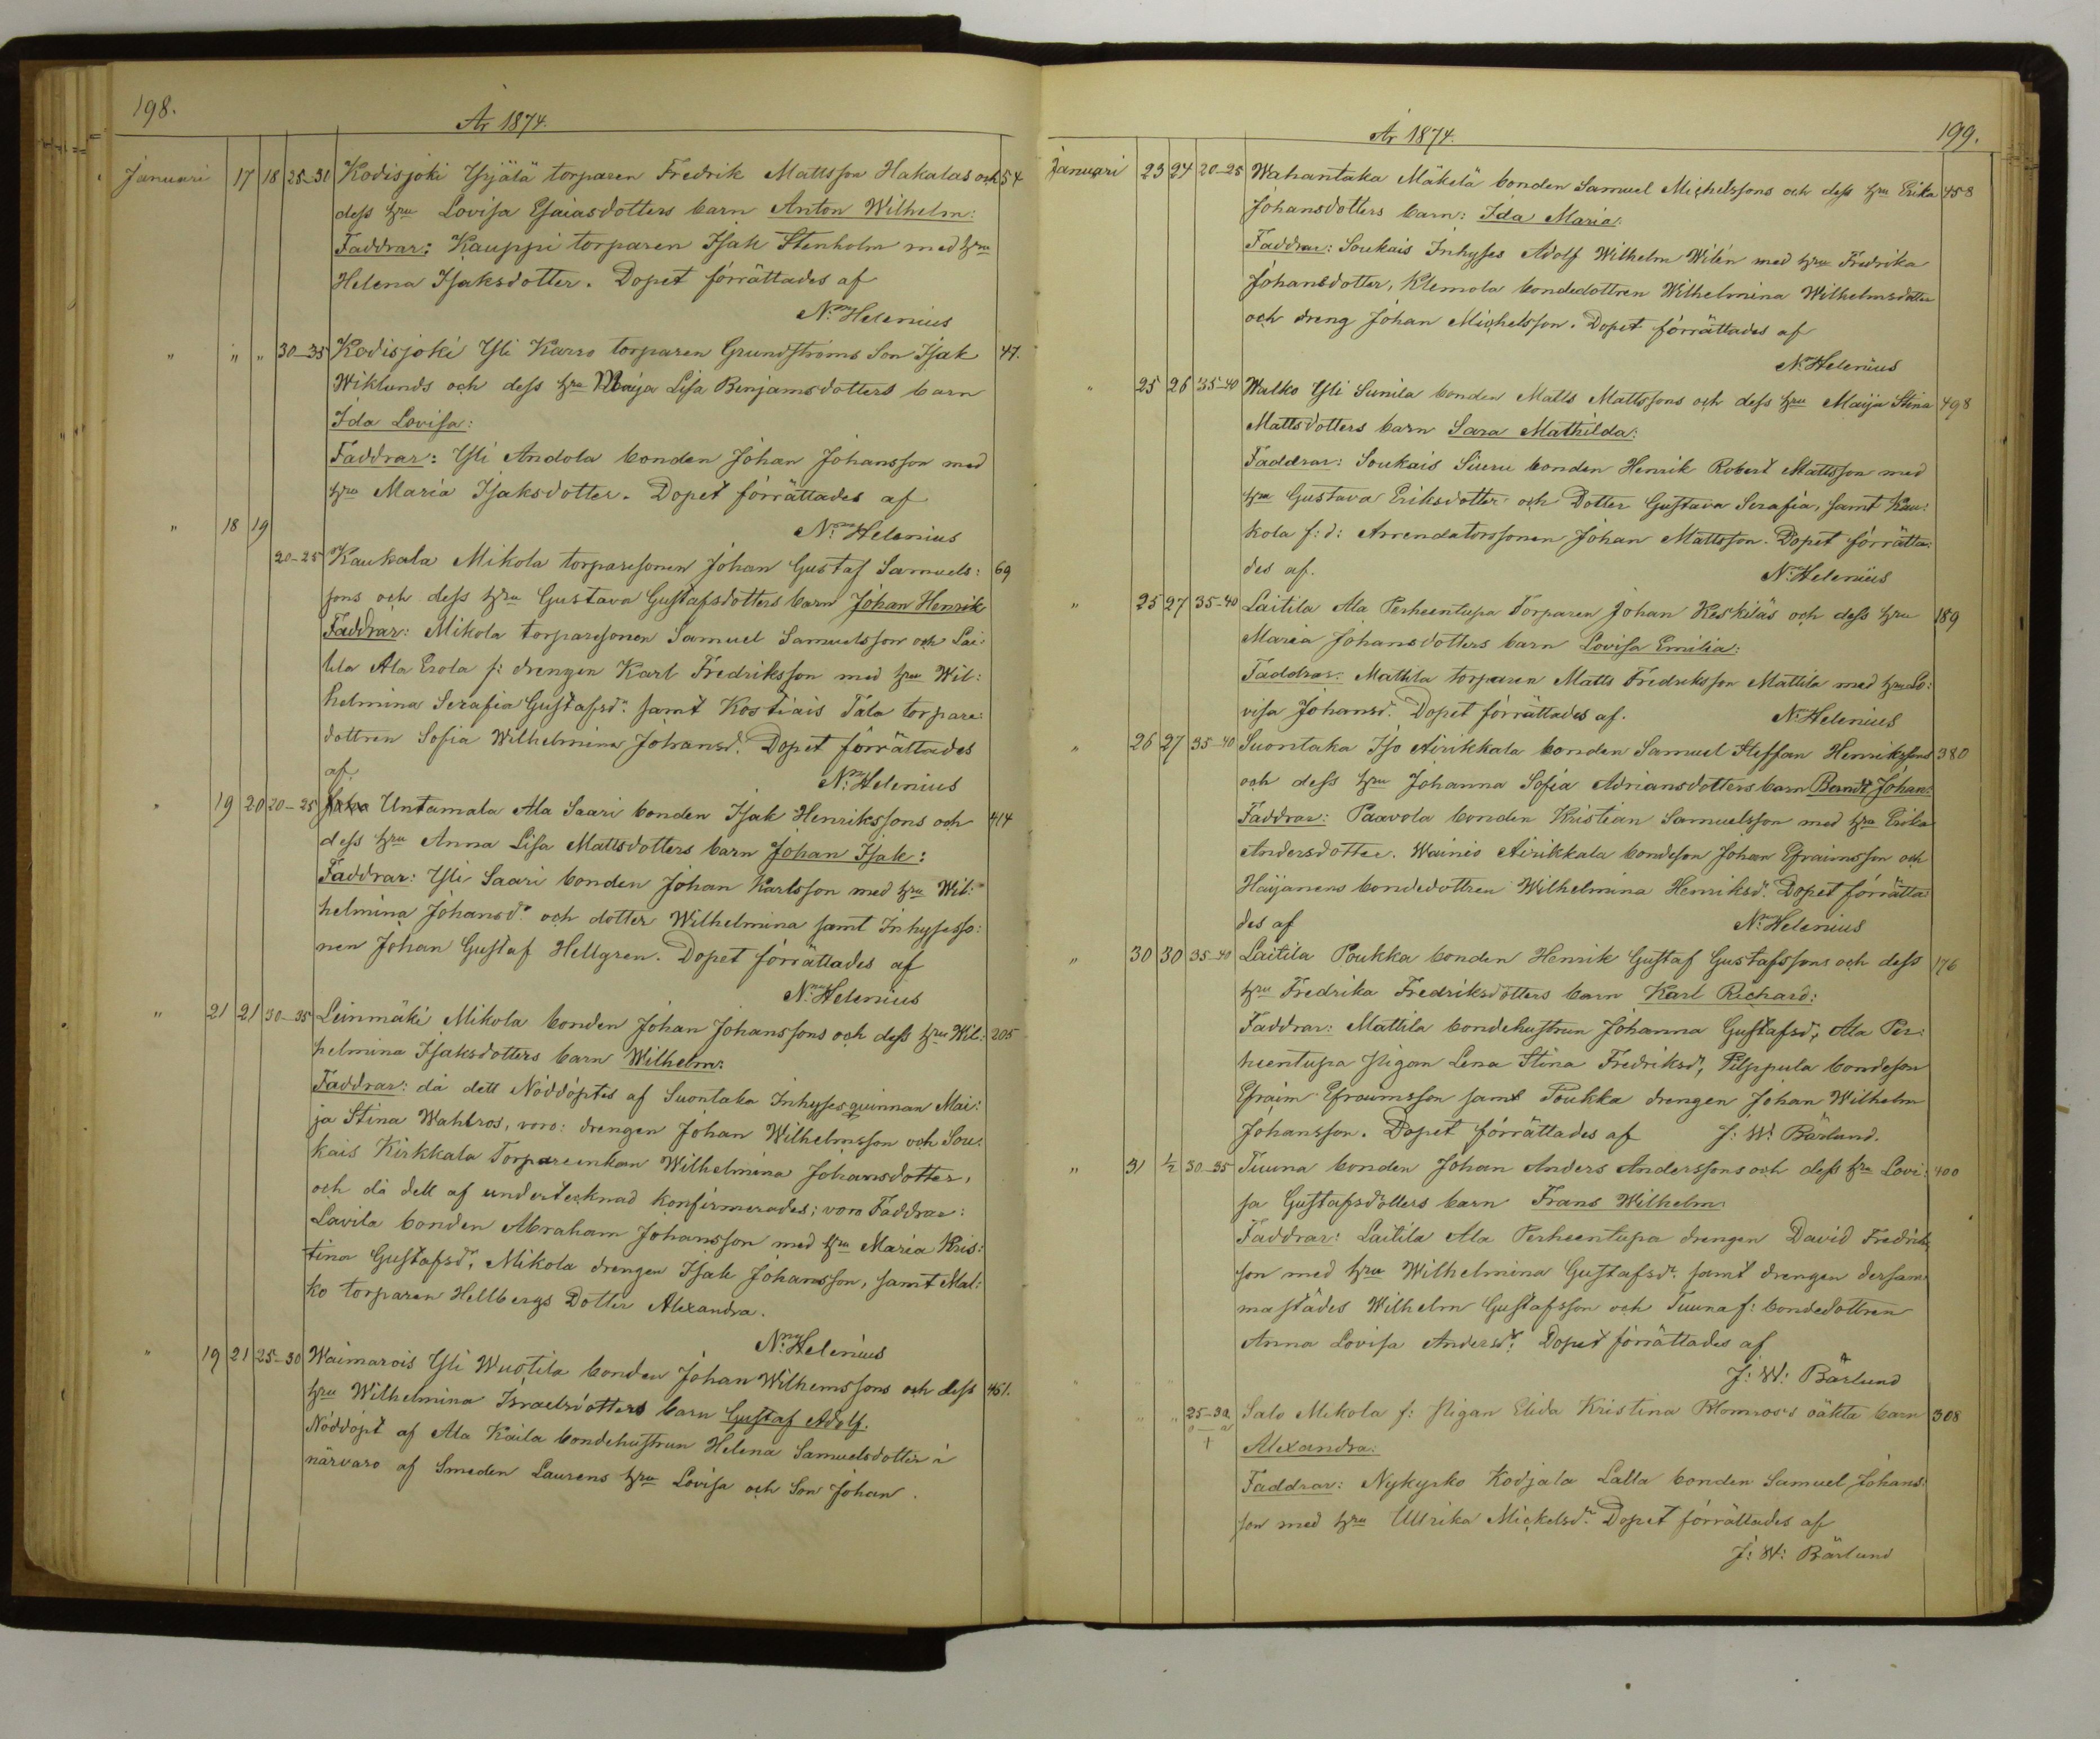 198.
År 1874.
Januari 17 18 25-30 Kodisjoki Yrjälä torparen Fredrik Mattsson Hakalas och 54
dess hru Lovisa Esaiasdotters barn Anton Wilhelm:
Faddrar: Kauppi torparen Isak Stenholm med hru
Helena Isaksdotter. Dopet förrättades af
N:m Helenius
" " " 30-35 Kodisjoki Yli Karro torparen Grundströms Son Isak 47.
Wiklunds och dess hru Maija Lisa Benjamsdotters barn
Ida Lovisa:
Faddrar: Yli Andola bonden Johan Johansson med
hru Maria Isaksdotter. Dopet förrättades af
" 18 19 N:m Helenius
20-25 Kaukala Mikola torparesonen Johan Gustaf Samuels: 69
sons och dess hru Gustava Gustafsdotters barn Johan Henrik
Faddrar: Mikola torparesonen Samuel Samuelsson och Lai:
tila Ala Erola f: drengen Karl Fredriksson med hru Wil:
helmina Serafia Gustafsd:r samt Kostiais Tala torpare:
dottren Sofia Wilhelmina Johansd:r Dopet förrättades
af N:m Helenius
" 19 20 20-25 Untamala Ala Saari bonden Isak Henrikssons och 414
dess hru Anna Lisa Mattsdotters barn Johan Isak:
Faddrar: Yli Saari bonden Johan Karlsson med hru Wil:
helmina Johansd:r och dotter Wilhelmina samt Inhysesso:
nen Johan Gustaf Hellgren. Dopet förrättades af
N:m Helenius
" 21 21 30-35 Leinmäki Mikola bonden Johan Johanssons och dess hru Wil: 205
helmina Isaksdotters barn Wilhelm:
Faddrar: då dett Nöddöptes af Suontaka Inhyses quinnan Mai:
ja Stina Wahlros, voro: drengen Johan Wilhelmsson och Sou:
kais Kirkkala Torpareenkan Wilhelmina Johansdotter,
och då dett af undertecknad konfirmerades; voro Faddrar:
Lavila bonden Abraham Johansson med hru Maria Kris:
tina Gustafsd:r, Mikola drengen Isak Johansson, samt Mal:
ko torparen Hellbergs Dotter Alexandra.
N:m Helenius
" 19 21 25-30 Waimarois Yli Wuotila bonden Johan Wilhemssons och dess 451.
hru Wilhelmina Israelsdotters barn Gustaf Adolf.
Nöddöpt af Ala Kaila bondehustrun Helena Samuelsdotter i
närvaro af Smeden Laurens hru Lovisa och Son Johan.
År 1874. 199.
Januari 23 24 20-25 Wahantaka Mäkelä bonden Samuel Michelssons och dess hru Erika 458
Johansdotters barn: Ida Maria:
Faddrar: Soukais Inhyses Adolf Wilhelm Wilén med hru Fredrika
Johansdotter, Klemola bondedottren Wilhelmina Wilhelmsdotter
och dreng Johan Michelsson. Dopet förrättades af
N:m Helenius
" 25 26 35-40 Walko Yli Sunila bonden Matts Mattssons och dess hru Maija Stina 498
Mattsdotters barn Sara Mathilda:
Faddrar: Soukais Siuru bonden Henrik Robert Mattsson med
hru Gustava Eriksdotter och Dotter Gustava Serafia, samt Kau:
kola f:d: Arrendatorssonen Johan Mattsson. Dopet förrätta:
des af. N:m Helenius
" 25 27 35-40 Laitila Ala Perheentupa Torparen Johan Keskiläs och dess hru 189
Maria Johansdotters barn Lovisa Emilia:
Faddrar: Mattila torparen Matts Fredriksson Mattila med hru Lo:
visa Johansd:r Dopet förrättades af. N:m Helenius
" 26 27 35-40 Suontaka Iso Airikkala bonden Samuel Steffan Henrikssons 380
och dess hru Johanna Sofia Adriansdotters barn Berndt Johan:
Faddrar: Paavola bonden Kristian Samuelsson med hru Erika
Andersdotter. Wainio Airikkala bondeson Johan Efraimsson och
Haijanens bondedottren Wilhelmina Henriksd:r Dopet förrätta:
des af N:m Helenius
" 30 30 35-40 Laitila Poukka bonden Henrik Gustaf Gustafssons och dess 176
hru Fredrika Fredriksdotters barn Karl Richard:
Faddrar: Mattila bondehustrun Johanna Gustafsd:r, Ala Per:
heentupa Pigan Lena Stina Fredriksd:r, Pilppula bondeson
Efraim Efraimsson samt Poukka drengen Johan Wilhelm
Johansson. Dopet förrättades af J: W: Bärlund.
" 31 ½ 30-35 Tuuna bonden Johan Anders Anderssons och dess hru Lovi: 400
sa Gustafsdotters barn Frans Wilhelm:
Faddrar: Laitila Ala Perheentupa drengen David Fredriks
son med hru Wilhelmina Gustafsd:r samt drengen dersam
mastädes Wilhelm Gustafsson och Tuuna f: bondedottren
Anna Lovisa Andersd:r Dopet förrättades af
J: W: Bärlund
" " " 25-30 Salo Mikola f: Pigan Elida Kristina Blomroos's oäkta barn 308
Alexandra:
Faddrar: Nykyrko Kodjala Lalla bonden Samuel Johans:
son med hru Ullrika Mickelsd:r Dopet förrättades af
J: W: Bärlund